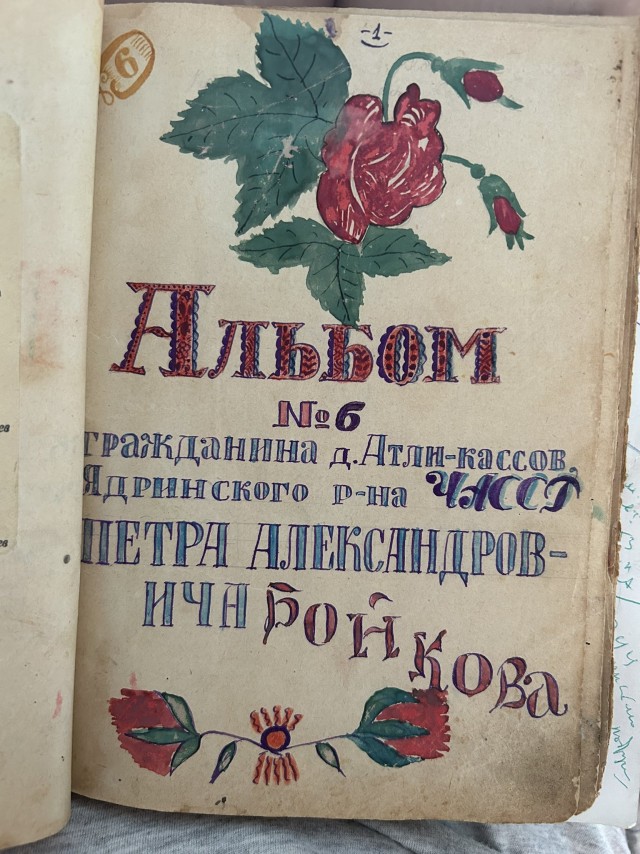 -1-
№ 6
Альбом
№ 6
гражданина д. Атли-кассов,
Ядринского р-на ЧАССР
ПЕТРА АЛЕКСАНДРОВ-
ИЧА БОЙКОВА